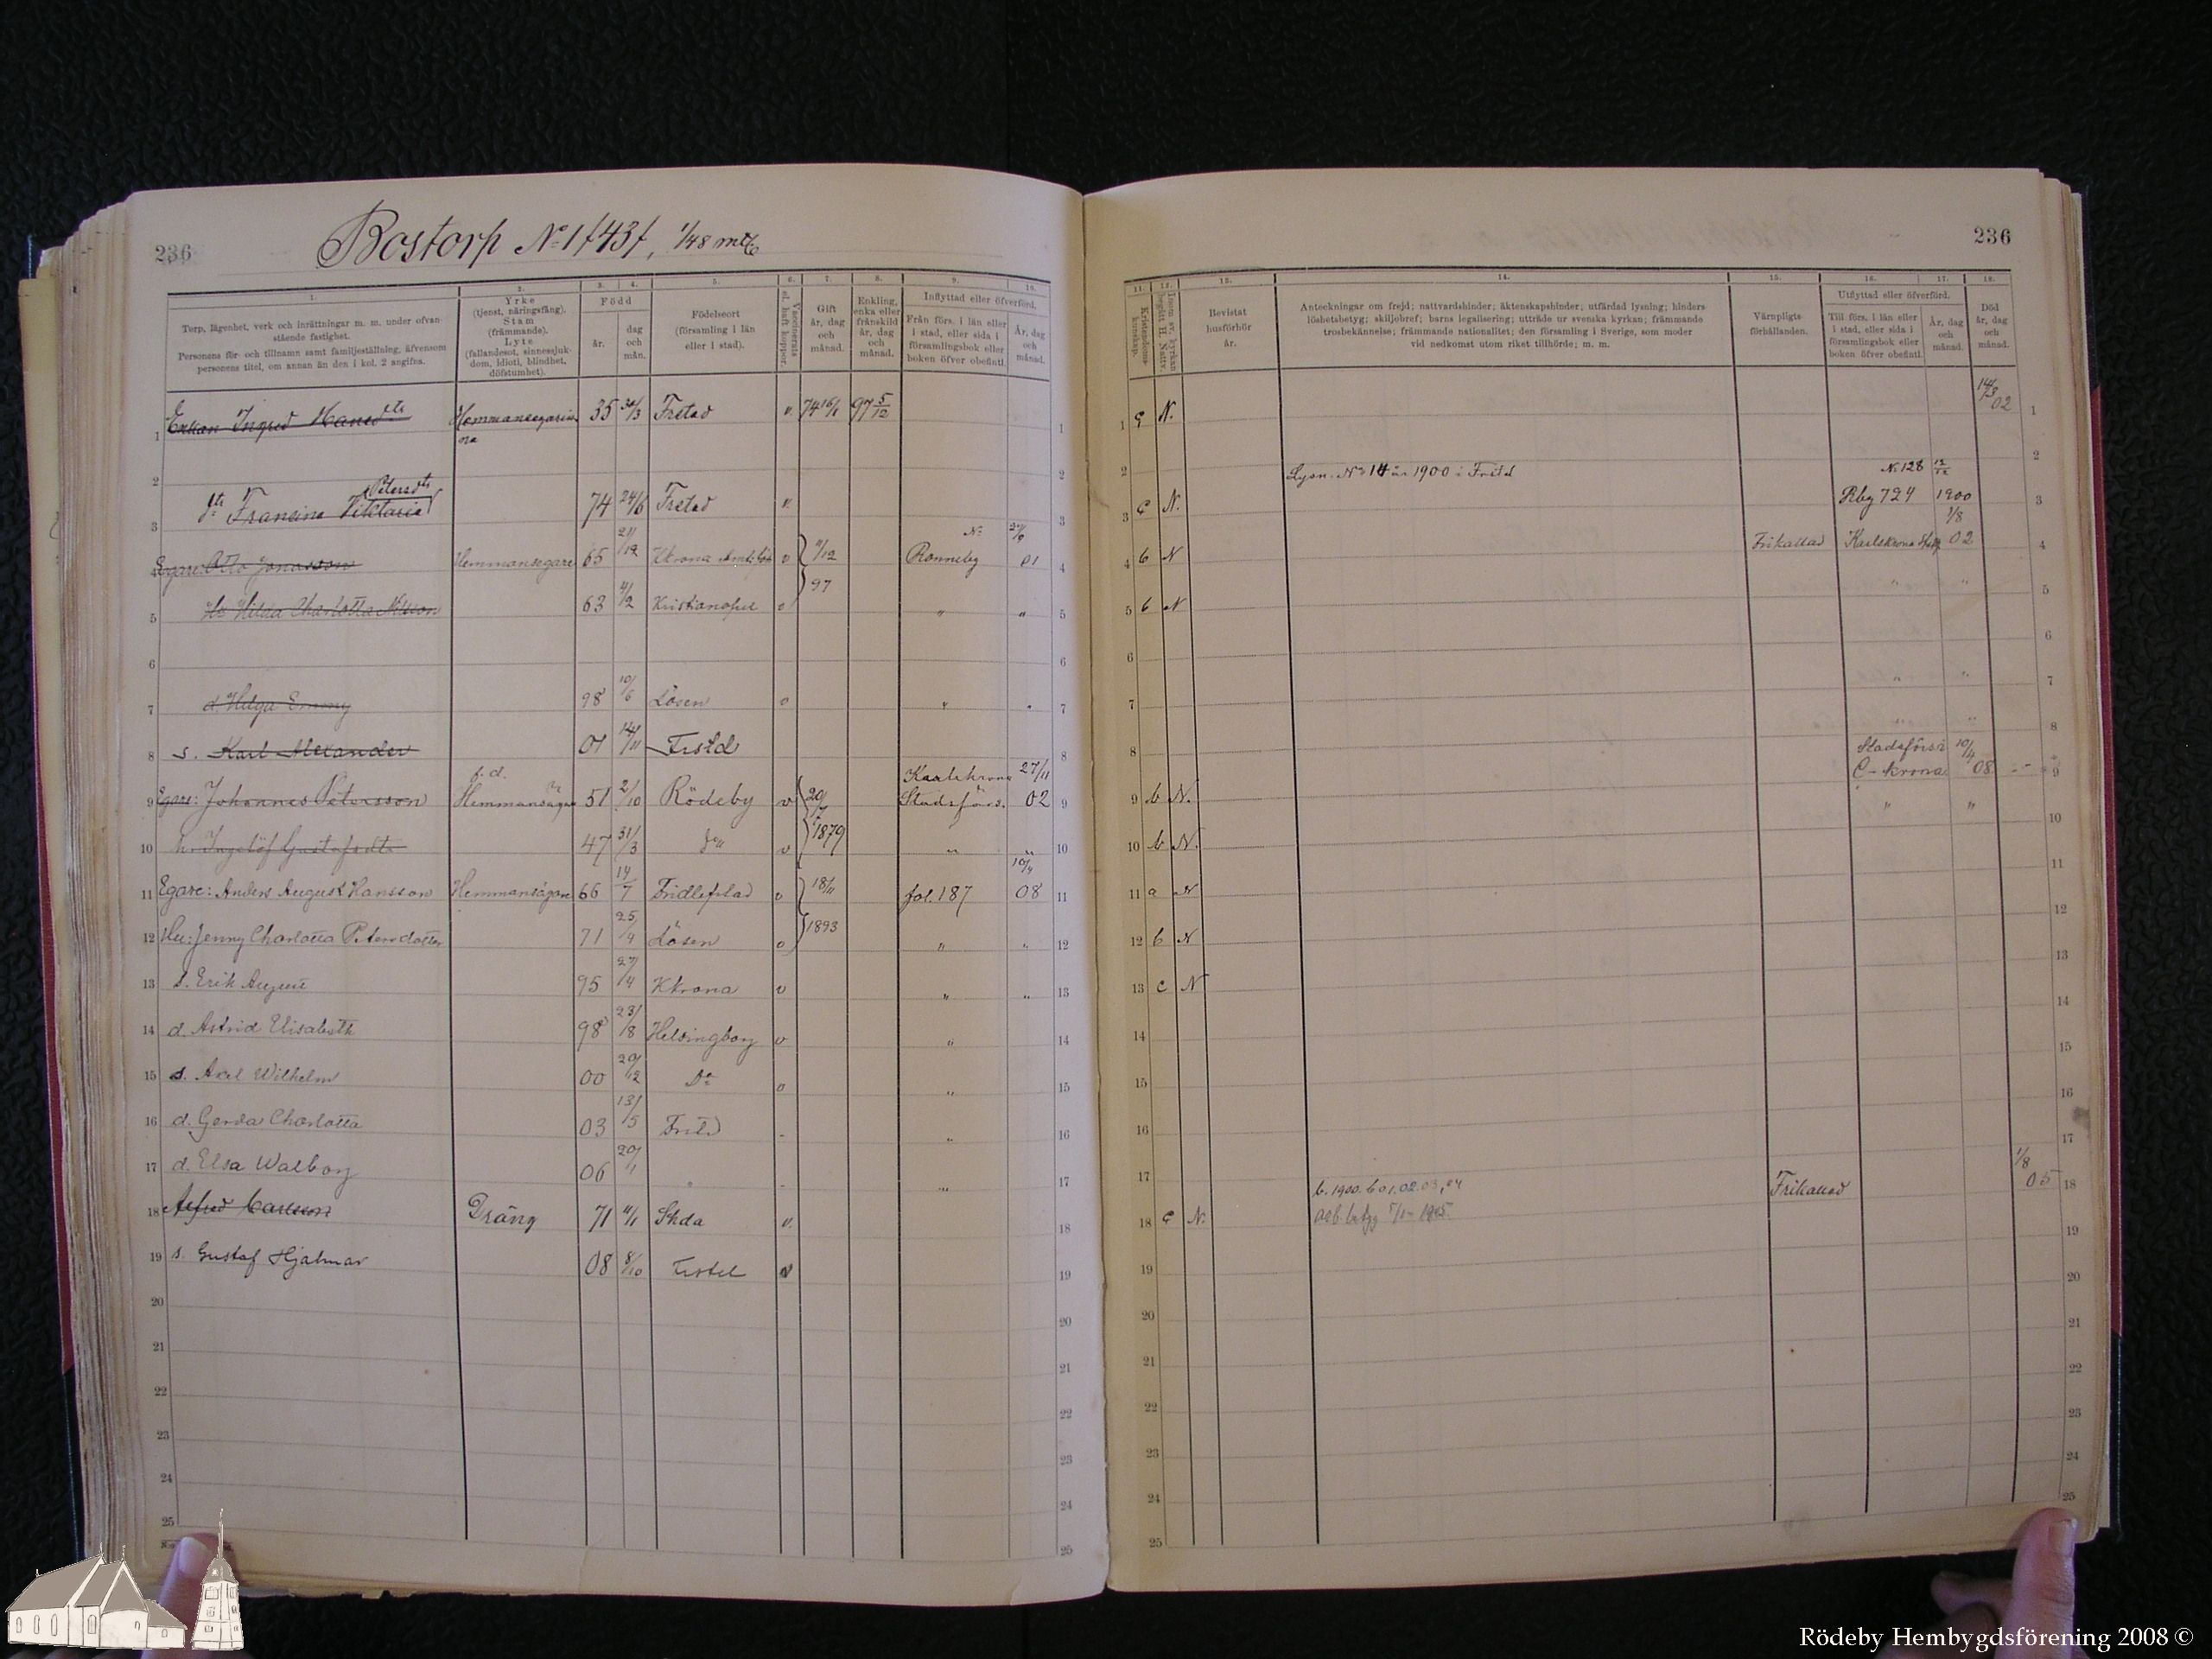 236
Bostorp No 1 /43/, 1/48 mtl
1. 2. 3. 4. 5. 6. 7. 8. 9. 10.
Torp, lägenhet, verk och inrättningar m. m. under ofvanstående fastighet.
Personens för- och tillnamn samt familjeställning, äfvensom personens titel, om annan än den i kol. 2 angifna.
Yrke (tjenst, näringsfång). Stam (främmande). Lyte (fallandesot, sinnessjukdom, idioti, blindhet, döfstumhet).
Född
år. dag och mån.
Födelseort (församling i län eller i stad).
Vaccinerats el. haft koppor.
Gift år, dag och månad.
Enkling, enka eller frånskild år, dag och månad.
Inflyttad eller öfverförd.
Från förs. i län eller i stad, eller sida i församlingsbok eller boken öfver obefintl.
År, dag och månad.
1 Enkan Ingrid Hansdtr Hemmansegarinna 35 30/3 Frstad v. 74 16/1 97 5/12 1
2 2
3 dtr Francina Viktoria Petersdtr 74 24/6 Frstad v. 3
4 Egare: Otto Jonasson Hemmansegare 65 21/12 Kkrona Aml.förs v 11/12 97 Ronneby 01 4
5 Hu Hilda Charlotta Nilsson 63 4/2 Kristianopel v " " 5
6 6
7 d. Helga Emmy 98 10/6 Lösen v " " 7
8 s. Karl Alexander 01 14/11 Frstd 8
9 Egare: Johannes Petersson f.d. Hemmansägare 51 2/10 Rödeby v 20/7 1879 Karlskrona Stadsförs. 27/11 02 9
10 h. Ingelöf Gustafsdtr 47 31/3 do v " " 10
11 Egare: Anders August Hansson Hemmansägare 66 14/7 Fridlefstad v 18/11 1893 fol. 187 10/4 08 11
12 Hu: Jenny Charlotta Petersdotter 71 25/9 Lösen v " " 12
13 s. Erik August 95 27/4 Kkrona v " " 13
14 d. Astrid Elisabeth 98 23/8 Helsingborg v " 14
15 s. Axel Wilhelm 00 20/12 Do v " 15
16 d. Gerda Charlotta 03 13/5 Frstd " 16
17 d. Elsa Walborg 06 20/1 " " 17
18 Alfred Carlsson Dräng 71 11/1 Skda v. 18
19 s. Gustaf Hjalmar 08 8/10 Frstd v 19
20 20
21 21
22 22
23 23
24 24
25 25
236
11. 12. 13. 14. 15. 16. 17. 18.
Kristendomskunskap.
Inom sv. kyrkan begått H. Nattv.
Bevistat husförhör år.
Anteckningar om frejd; nattvardshinder; äktenskapshinder; utfärdad lysning; hinders löshetsbetyg; skiljobref; barns legalisering; utträde ur svenska kyrkan; främmande trosbekännelse; främmande nationalitet; den församling i Sverige, som moder vid nedkomst utom riket tillhörde; m. m.
Värnpligtsförhållanden.
Utflyttad eller öfverförd.
Till förs. i län eller i stad, eller sida i församlingsbok eller boken öfver obefintl.
År, dag och månad.
Död år, dag och månad.
1 c N. 14/3 02 1
2 Lysn. No 14 år 1900 i Frstd N. 128 12/12 2
3 c N. Rby 724 1900 3
4 b N Frikallad Karlskrona 1/8 02 4
5 b N " " 5
6 6
7 " " 7
8 " " 8
9 b N. Stadsförs i C-krona 10/4 08 9
10 b N. " " 10
11 a N 11
12 b N 12
13 c N 13
14 14
15 15
16 16
17 17
18 c N. b. 1900. b 01. 02. 03, 04 Frikallad 1/8 05 18
19 19
20 20
21 21
22 22
23 23
24 24
25 25
Rödeby Hembygdsförening 2008 ©